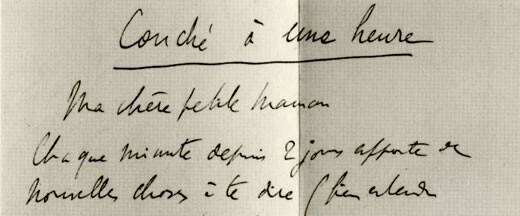 Couché à une heure
Ma chère petite Maman
Chaque minute depuis 2 jours apporte de
nouvelles choses à te dire (